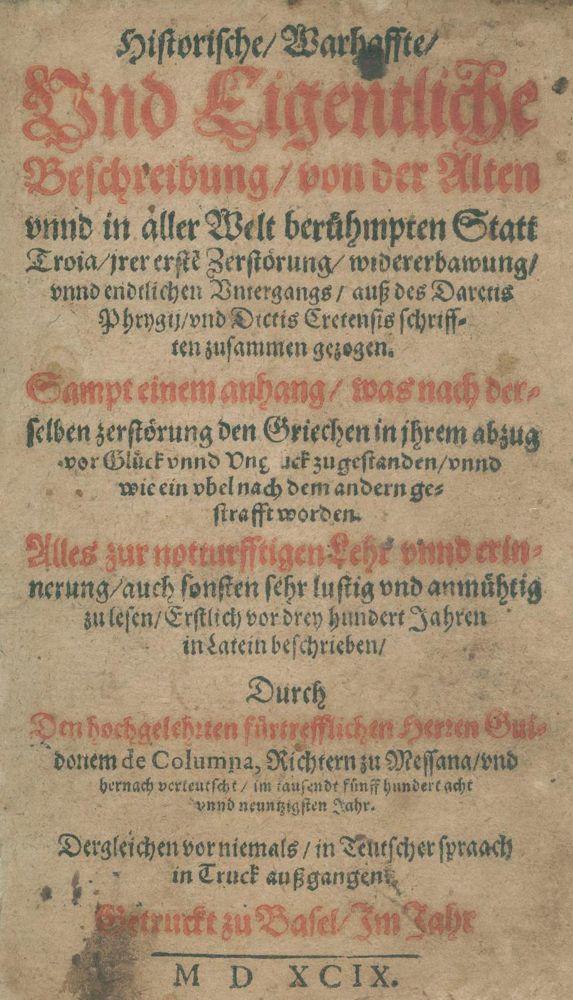 Historische/ Warhaffte/
Vnd Eigentliche
Beschreibung/ von der Alten
vnnd in aller Welt berühmpten Statt
Troia/ jrer erstē Zerstörung/ widererbawung/
vnnd endtlichen Vntergangs/ auß des Daretis
Phrygij/ vnd Dictis Cretensis schriff-
ten zusammen gezogen.
Sampt einem anhang/ was nach der-
selben zerstörung den Griechen in jhrem abzug
vor Glück vnnd zugestanden/ vnnd
wie ein vbel nach dem andern ge-
strafft worden.
Alles zur notturfftigen Lehr vnnd erin-
nerung/ auch sonsten sehr lustig vnd anmühtig
zu lesen/ Erstlich vor drey hundert Jahren
in Latein beschrieben/
Durch
Den hochgelehrten fürtrefflichen Herren Gui-
donem de Columna, Richtern zu Messana/ vnd
hernach verteutscht/ im tausendt fünff hundert acht
vnnd neuntzigsten Jahr.
Dergleichen vor niemals/ in Teutscher spraach
in Truck außgangen.
Getruckt zu Basel/ Im Jahr
M D XCIX.